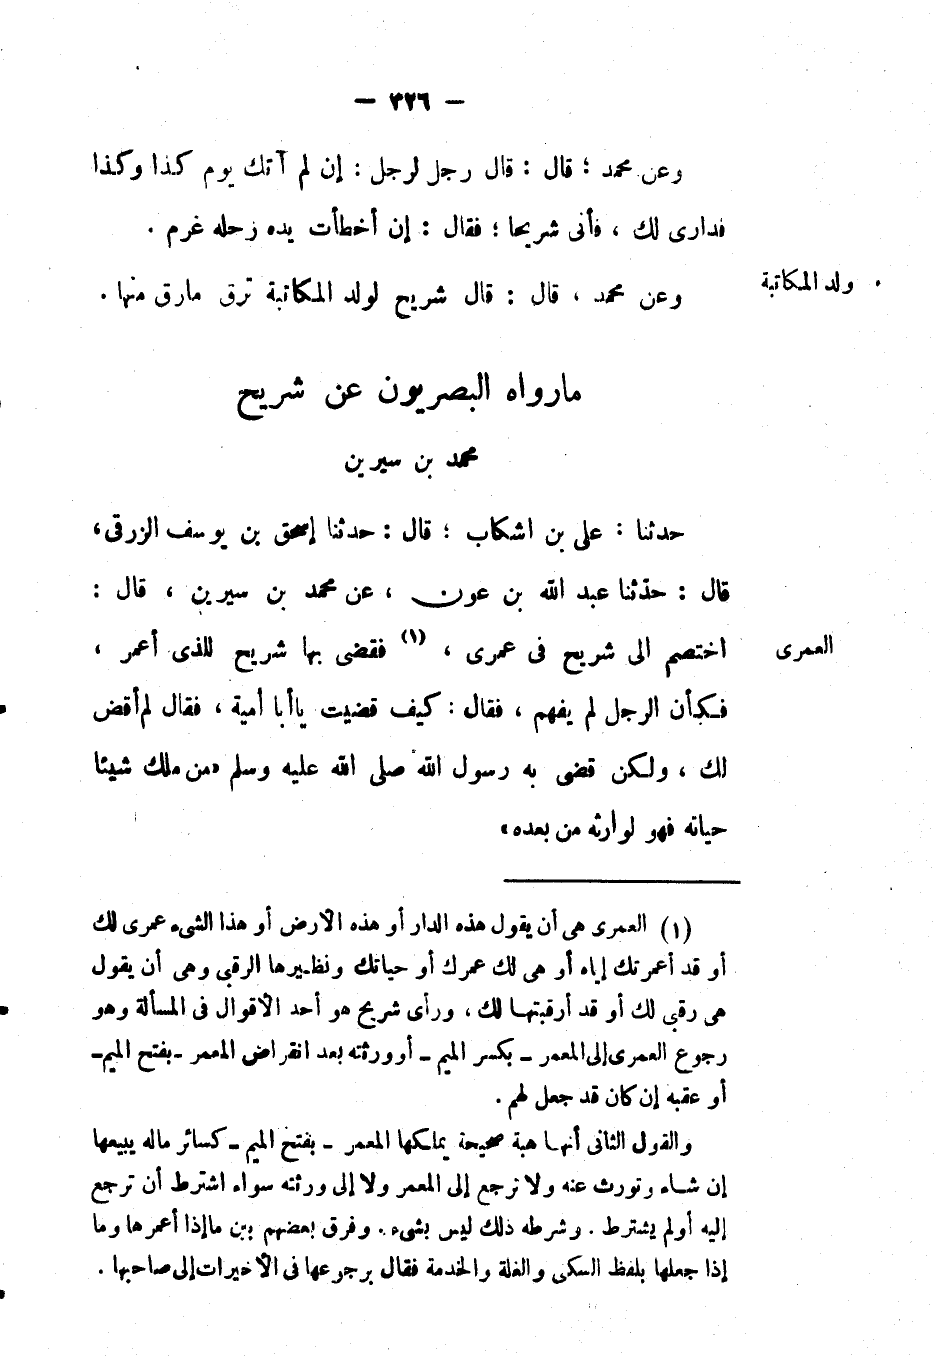 — ٣٢٦ —
وعن محمد ؛ قال : قال رجل لرجل : إن لم آتك يوم كذا وكذا
فدارى لك ، فأتى شريحا ؛ فقال : إن أخطأت يده زحله غرم .
ولد المكاتبة
وعن محمد ، قال : قال شريح لولد المكاتبة ترق مارق منها .
مارواه البصريون عن شريح
محمد بن سيرين
حدثنا : على بن اشكاب ؛ قال : حدثنا إسحق بن يوسف الزرقى،
قال : حدثنا عبد الله بن عون ، عن محمد بن سيرين ، قال :
العمرى
اختصم الى شريح فى عمرى ، (١) فقضى بها شريح للذى أعمر ،
فكأن الرجل لم يفهم ، فقال : كيف قضيت ياأبا أمية ، فقال لم أقض
لك ، ولكن قضى به رسول الله صلى الله عليه وسلم «من ملك شيئا
حياته فهو لوارثه من بعده»
(١) العمرى هى أن يقول هذه الدار أو هذه الأرض أو هذا الشىء عمرى لك
أو قد أعمرتك إياه أو هى لك عمرك أو حياتك ونظيرها الرقبى وهى أن يقول
هى رقبى لك أو قد أرقبتها لك ، ورأى شريح هو أحد الأقوال فى المسألة وهو
رجوع العمرى إلى المعمر ــ بكسر الميم ــ أو ورثته بعد انقراض المعمر ــ بفتح الميم ــ
أو عقبه إن كان قد جعل لهم .
والقول الثانى أنها هبة صحيحة يملكها المعمر ــ بفتح الميم ــ كسائر ماله يبيعها
إن شاء وتورث عنه ولا ترجع إلى المعمر ولا إلى ورثته سواء اشترط أن ترجع
إليه أولم يشترط . وشرطه ذلك ليس بشىء . وفرق بعضهم بين ماإذا أعمرها وما
إذا جعلها بلفظ السكنى والغلة والخدمة فقال برجوعها فى الأخيرات إلى صاحبها .